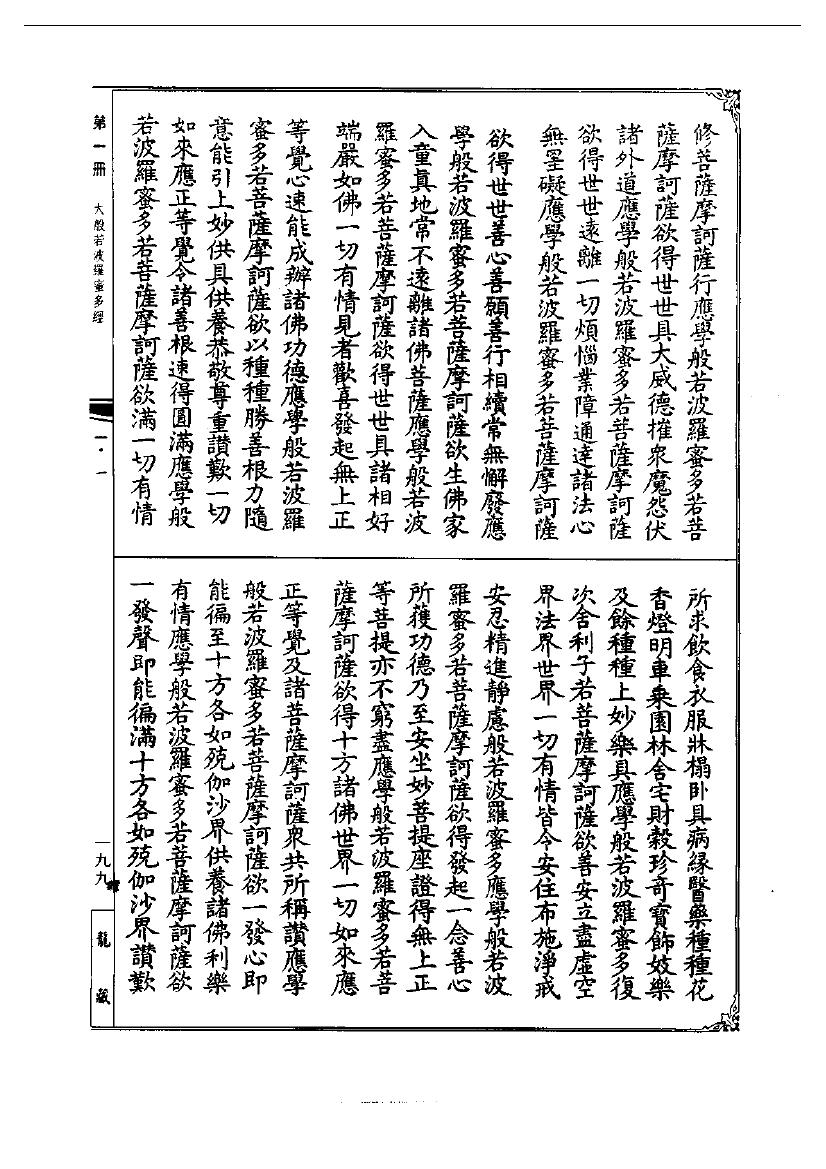 修菩薩摩訶薩行應學般若波羅蜜多若菩
薩摩訶薩欲得世世具大威德摧衆魔怨伏
諸外道應學般若波羅蜜多若菩薩摩訶薩
欲得世世遠離一切煩惱業障通達諸法心
無罣礙應學般若波羅蜜多若菩薩摩訶薩
欲得世世善心善願善行相續常無懈廢應
學般若波羅蜜多若菩薩摩訶薩欲生佛家
入童真地常不遠離諸佛菩薩應學般若波
羅蜜多若菩薩摩訶薩欲得世世具諸相好
端嚴如佛一切有情見者歡喜發起無上正
等覺心速能成辦諸佛功德應學般若波羅
蜜多若菩薩摩訶薩欲以種種勝善根力隨
意能引上妙供具供養恭敬尊重讃歎一切
如來應正等覺令諸善根速得圓滿應學般
若波羅蜜多若菩薩摩訶薩欲滿一切有情
所求飲食衣服牀榻卧具病緣醫藥種種花
香燈明車乗園林舍宅財穀珍奇寳飾妓樂
及餘種種上妙樂具應學般若波羅蜜多復
次舍利子若菩薩摩訶薩欲善安立盡虛空
界法界世界一切有情皆令安住布施淨戒
安忍精進靜慮般若波羅蜜多應學般若波
羅蜜多若菩薩摩訶薩欲得發起一念善心
所獲功德乃至安坐妙菩提座證得無上正
等菩提亦不窮盡應學般若波羅蜜多若菩
薩摩訶薩欲得十方諸佛世界一切如來應
正等覺及諸菩薩摩訶薩衆共所稱讃應學
般若波羅蜜多若菩薩摩訶薩欲一發心即
能徧至十方各如殑伽沙界供養諸佛利樂
有情應學般若波羅蜜多若菩薩摩訶薩欲
一發聲即能徧滿十方各如殑伽沙界讃歎
第一冊 大般若波羅蜜多經
一·一
一九九
龍藏